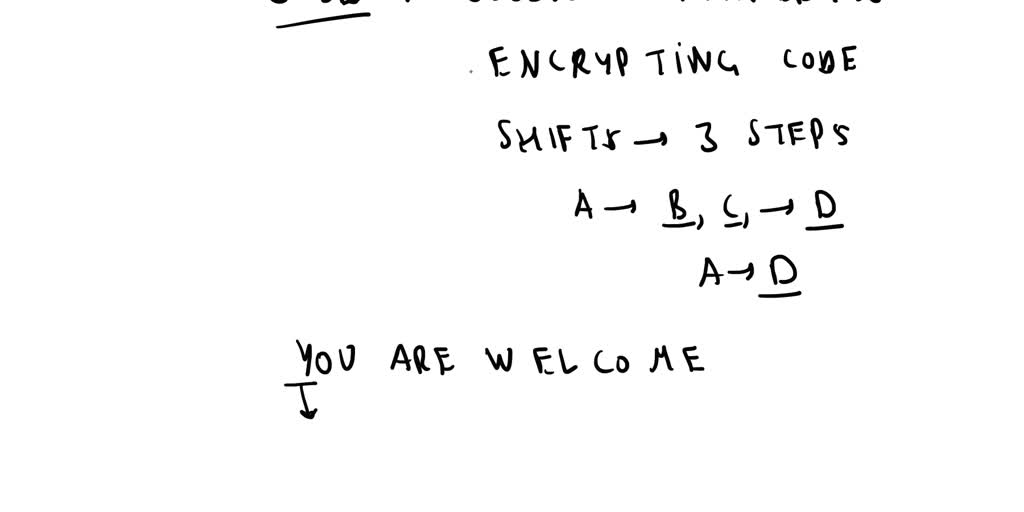 ENCRYPTING CODE
SHIFTS → 3 STEPS
A → B, C, → D
A → D
YOU ARE WELCOME